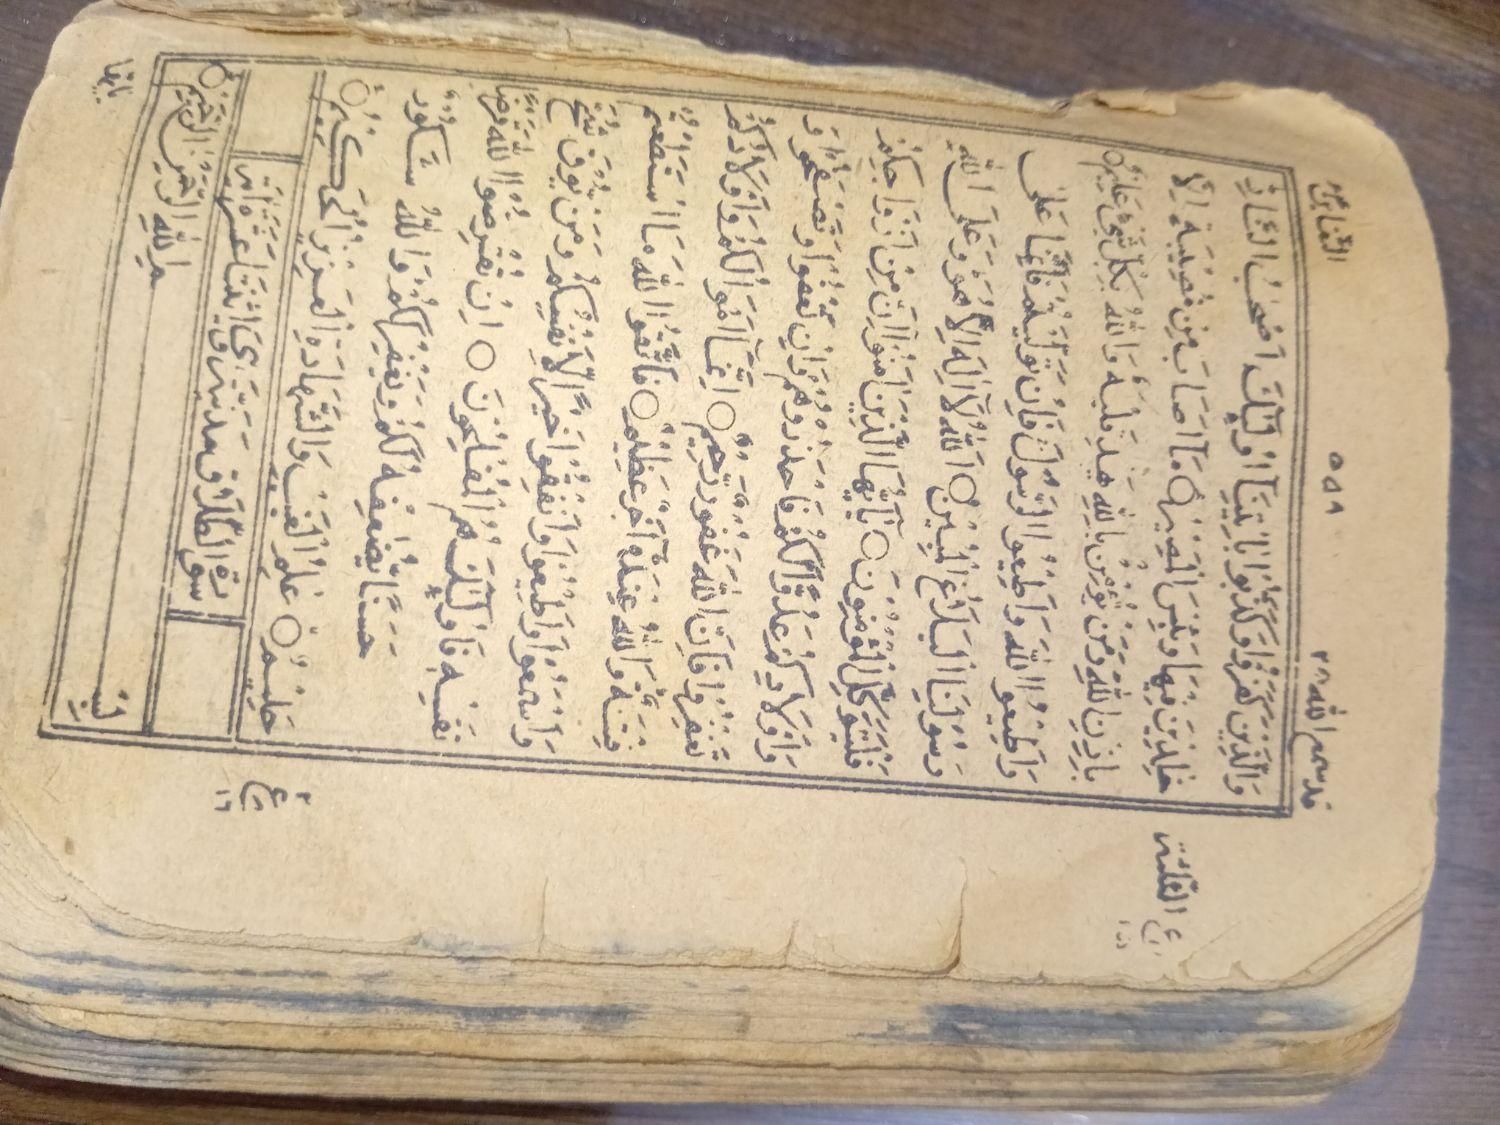 التغابن ٦٤
٥٥٨
قد سمع الله ٢٨
وَالَّذِيْنَ كَفَرُوْا وَكَذَّبُوْا بِاٰيٰتِنَاۤ اُولٰٓئِكَ اَصْحٰبُ النَّارِ
خٰلِدِيْنَ فِيْهَا وَبِئْسَ الْمَصِيْرُ ○ مَاۤ اَصَابَ مِنْ مُّصِيْبَةٍ اِلَّا
بِاِذْنِ اللّٰهِ وَمَنْ يُّؤْمِنْۢ بِاللّٰهِ يَهْدِ قَلْبَهٗ وَاللّٰهُ بِكُلِّ شَيْءٍ عَلِيْمٌ
وَاَطِيْعُوا اللّٰهَ وَاَطِيْعُوا الرَّسُوْلَ فَاِنْ تَوَلَّيْتُمْ فَاِنَّمَا عَلٰى
رَسُوْلِنَا الْبَلٰغُ الْمُبِيْنُ ○ اَللّٰهُ لَاۤ اِلٰهَ اِلَّا هُوَ وَعَلَى اللّٰهِ
فَلْيَتَوَكَّلِ الْمُؤْمِنُوْنَ ○ يٰۤاَيُّهَا الَّذِيْنَ اٰمَنُوْۤا اِنَّ مِنْ اَزْوَاجِكُمْ
وَاَوْلَادِكُمْ عَدُوًّا لَّكُمْ فَاحْذَرُوْهُمْ وَاِنْ تَعْفُوْا وَتَصْفَحُوْا وَ
تَغْفِرُوْا فَاِنَّ اللّٰهَ غَفُوْرٌ رَّحِيْمٌ ○ اِنَّمَاۤ اَمْوَالُكُمْ وَاَوْلَادُكُمْ
فِتْنَةٌ وَاللّٰهُ عِنْدَهٗۤ اَجْرٌ عَظِيْمٌ ○ فَاتَّقُوا اللّٰهَ مَا اسْتَطَعْتُمْ
وَاسْمَعُوْا وَاَطِيْعُوْا وَاَنْفِقُوْا خَيْرًا لِّاَنْفُسِكُمْ وَمَنْ يُّوْقَ شُحَّ
نَفْسِهٖ فَاُولٰٓئِكَ هُمُ الْمُفْلِحُوْنَ ○ اِنْ تُقْرِضُوا اللّٰهَ قَرْضًا
حَسَنًا يُّضٰعِفْهُ لَكُمْ وَيَغْفِرْ لَكُمْ وَاللّٰهُ شَكُوْرٌ
حَلِيْمٌ ○ عٰلِمُ الْغَيْبِ وَالشَّهَادَةِ الْعَزِيْزُ الْحَكِيْمُ ○
سورة الطلاق مدنية وهي اثنتا عشرة اية
بِسْمِ اللّٰهِ الرَّحْمٰنِ الرَّحِيْمِ ○
يايها
الثلثة
ع
٢
ع
١٦